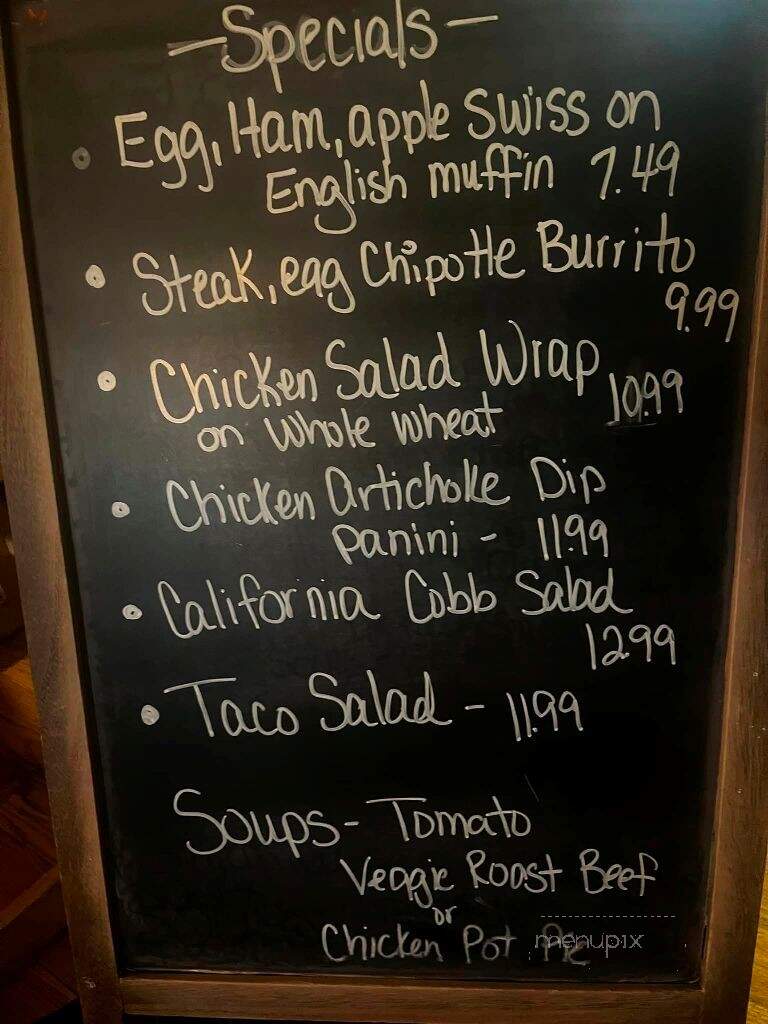 - Specials -
• Egg, Ham, apple Swiss on
English muffin 7.49
• Steak, egg Chipotle Burrito
9.99
• Chicken Salad Wrap
on whole wheat 10.99
• Chicken Artichoke Dip
panini - 11.99
• California Cobb Salad
12.99
• Taco Salad - 11.99
Soups - Tomato
Veggie Roast Beef
or
Chicken Pot Pie
menupix